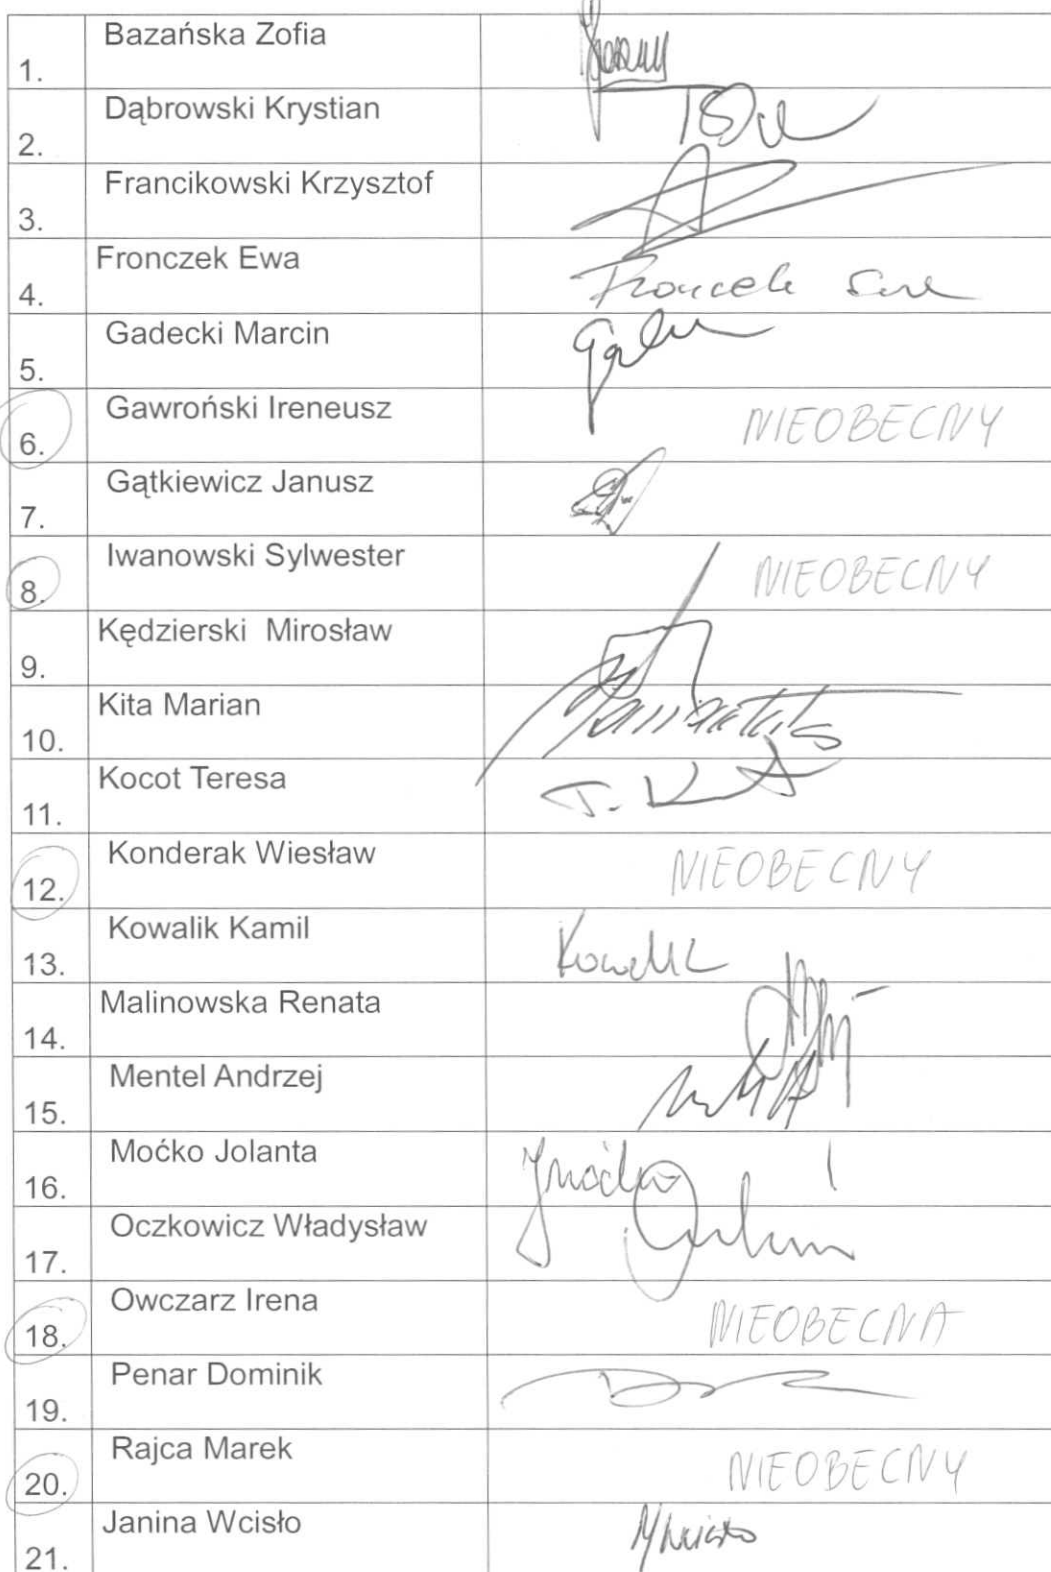 1. Bazańska Zofia
2. Dąbrowski Krystian
3. Francikowski Krzysztof
4. Fronczek Ewa
5. Gadecki Marcin
6. Gawroński Ireneusz NIEOBECNY
7. Gątkiewicz Janusz
8. Iwanowski Sylwester NIEOBECNY
9. Kędzierski Mirosław
10. Kita Marian
11. Kocot Teresa T. K
12. Konderak Wiesław NIEOBECNY
13. Kowalik Kamil
14. Malinowska Renata
15. Mentel Andrzej
16. Moćko Jolanta
17. Oczkowicz Władysław
18. Owczarz Irena NIEOBECNA
19. Penar Dominik
20. Rajca Marek NIEOBECNY
21. Janina Wcisło